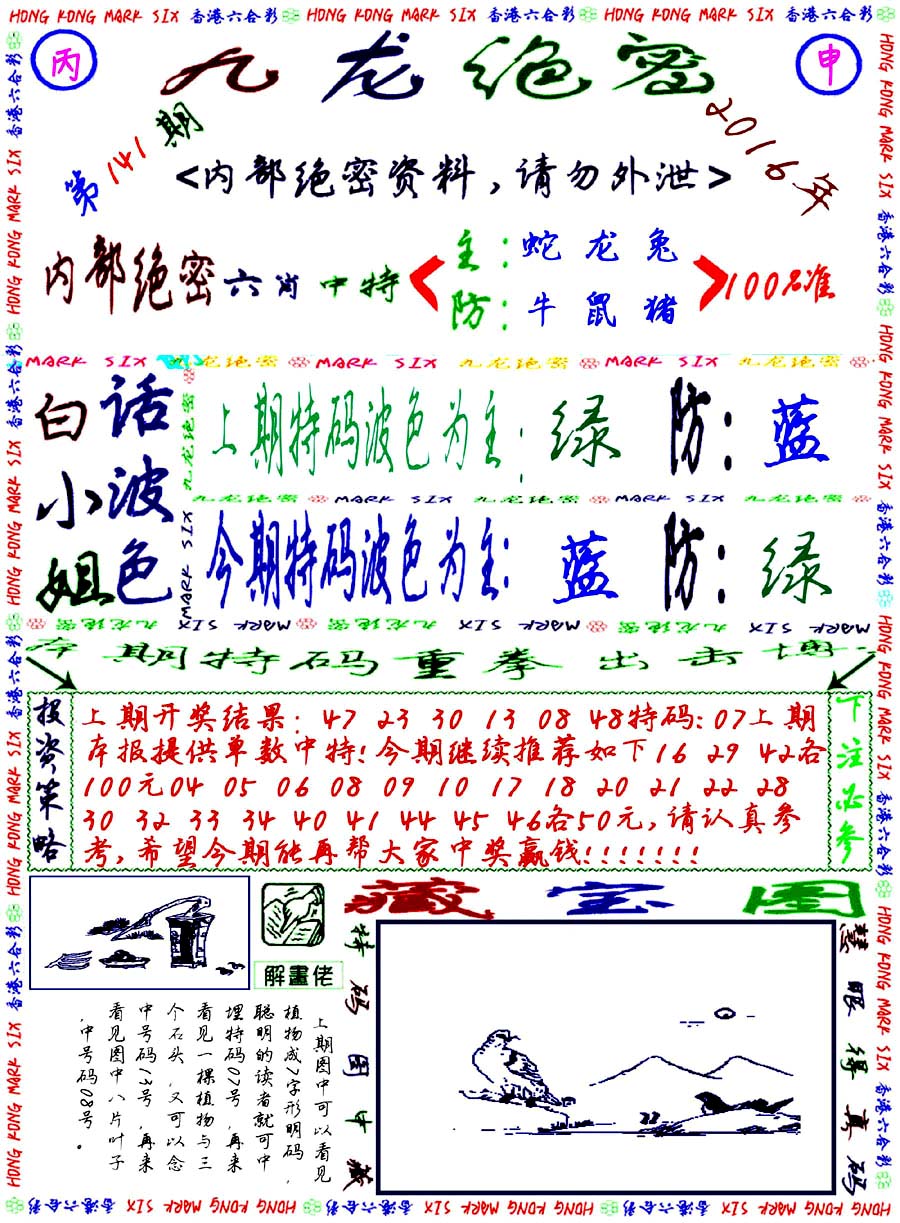 HONG KONG MARK SIX 香港六合彩 HONG KONG MARK SIX 香港六合彩 HONG KONG MARK SIX 香港六合彩
丙 九龙绝密 申
第141期 2016年
<内部绝密资料,请勿外泄>
内部绝密六肖中特
主:蛇 龙 兔
防:牛 鼠 猪
100%准
MARK SIX 九龙绝密 MARK SIX 九龙绝密 MARK SIX 九龙绝密
白话小波姐色
上期特码波色为主:绿 防:蓝
九龙绝密 MARK SIX 九龙绝密 MARK SIX 九龙绝密
今期特码波色为主:蓝 防:绿
九龙绝密 MARK SIX 九龙绝密 MARK SIX 九龙绝密 MARK SIX
本期特码重拳出击博
投资策略
上期开奖结果:47 23 30 13 08 48特码:07上期
本报提供单数中特!今期继续推荐如下16 29 42各
100元04 05 06 08 09 10 17 18 20 21 22 28
30 32 33 34 40 41 44 45 46各50元,请认真参
考,希望今期能再帮大家中奖赢钱!!!!!!!
下注必参
藏宝图
解畫佬
上期图中可以看见
植物成7字形明码,
聪明的读者就可中
埋特码07号,再来
看见一棵植物与三
个石头,又可以念
中号码13号,再来
看见图中八片叶子
,中号码08号。
特码图中藏
慧眼得真码
HONG KONG MARK SIX 香港六合彩 HONG KONG MARK SIX 香港六合彩 HONG KONG MARK SIX 香港六合彩